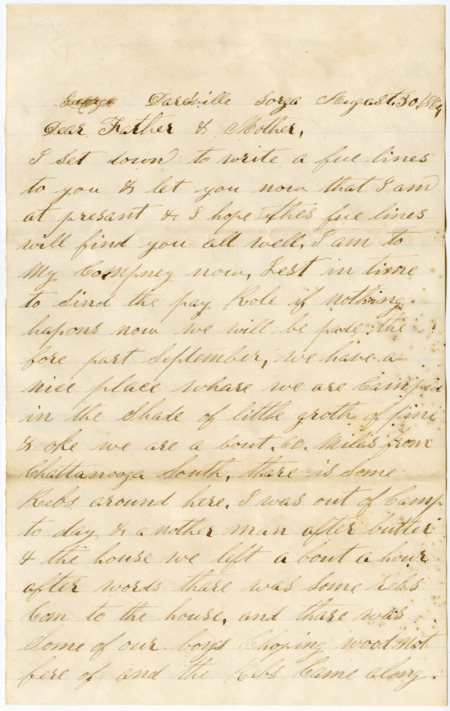 Daresville Gorga August 30, 1864
Dear Father & Mother,
I set down to write a fue lines
to you & let you now that I am
at presant & I hope thes fue lines
will find you all well, I am to
My Compney now, Jest in time
to Sind the pay Role if nothing
hapons now we will be pade the
fore part September, we have a
nice place whare we are Camped
in the Shade of little groth of pine
& oke we are a bout 60 Miles from
Chattanooga South, thare is some
Rebs around here, I was out of Camp
to day & a nother man after butter
& the house we left a bout a hour
after words thare was some Rebs
Com to the house, and thare was
Some of our boys Choping wood not
fere of and the Rebs Came along.